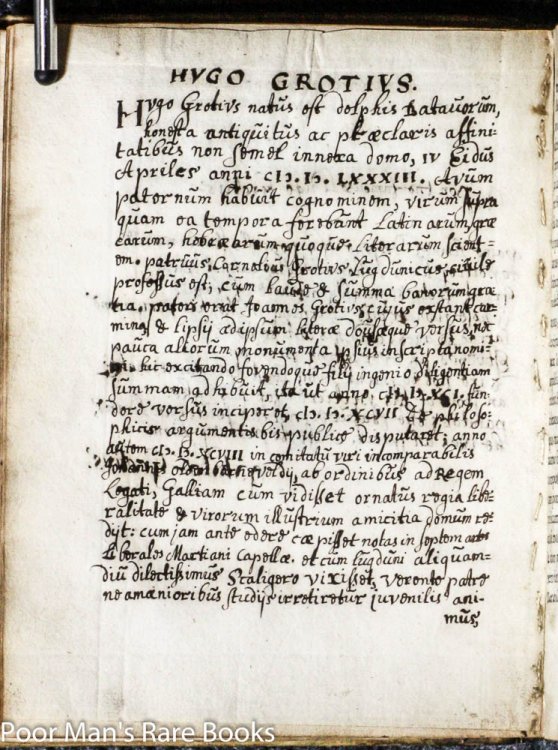 HVGO GROTIVS.
Hugo Grotius natus est delphis Batavorum,
honesta antiquitus ac præclaris affini-
tatibus non semel innexa domo, IV Eidus
Apriles anni CIↃ.IↃ.LXXXIII. Avum
paternum habuit cognominem, virum supra
quam ea tempora ferebant Latinarum, græ
carum, hebræarum quoque Literarum scient-
em. patruus, Cornelius Grotius Lugduni jus civile
professus est, cum laude & summa bonorum gra
tia. pater erat Joannes Grotius, cujus extant car
mina, & Lipsij ad ipsum literæ dousæque versus, nec
pauca aliorum monumenta ipsius inscripta nomi-
ni. hic excitando fovendoque filij ingenio diligentiam
summam adhibuit, ita ut anno CIↃ.IↃ.XCI. fun-
dere versus inciperet, CIↃ.IↃ.XCVII de philoso-
phicis argumentis bis publice disputaret; anno
autem CIↃ.IↃ.XCVIII in comitatu viri incomparabilis
Johannis oldenbarneveldij, ab ordinibus ad Regem
Legati, Galliam cum vidisset ornatus regia libe-
ralitate & virorum illustrium amicitia domum re-
dijt: cum jam ante edere cæpisset notas in septem artes
liberales Martiani Capellæ. et cum lugduni aliquam-
diu dilectissimus Scaligero vixisset, verente patre
ne amænioribus studijs irretiretur juvenilis ani-
mus,
Poor Man's Rare Books